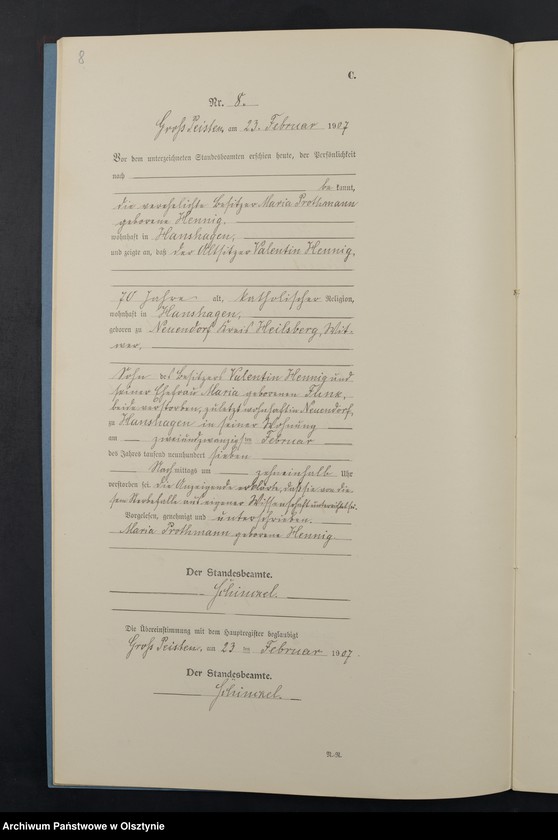 8
C.
Nr. 8.
Gross Peisten, am 23. Februar 1907
Vor dem unterzeichneten Standesbeamten erschien heute, der Persönlichkeit
nach
be kannt,
die verehelichte Besitzer Maria Prothmann
geborene Hennig.
wohnhaft in Hanshagen,
und zeigte an, daß der Altsitzer Valentin Hennig,
70 Jahre alt, katholischer Religion,
wohnhaft in Hanshagen,
geboren zu Neuendorf Kreis Heilsberg, Wit-
wer,
Sohn des Besitzers Valentin Hennig und
seiner Ehefrau Maria geborenen Funk,
beide verstorben, zuletzt wohnhaft in Neuendorf,
zu Hanshagen in seiner Wohnung
am zweiundzwanzigsten Februar
des Jahres tausend neunhundert sieben
Nachmittags um zehneinhalb Uhr
verstorben sei. Die Anzeigende erklärte, daß sie von die-
sem Sterbefalle aus eigener Wissenschaft unterrichtet sei.
Vorgelesen, genehmigt und unterschrieben.
Maria Prothmann geborene Hennig
Der Standesbeamte.
Schimmel.
Die Übereinstimmung mit dem Hauptregister beglaubigt
Gross Peisten, am 23 ten Februar 1907
Der Standesbeamte.
Schimmel.
Archiwum Państwowe w Olsztynie